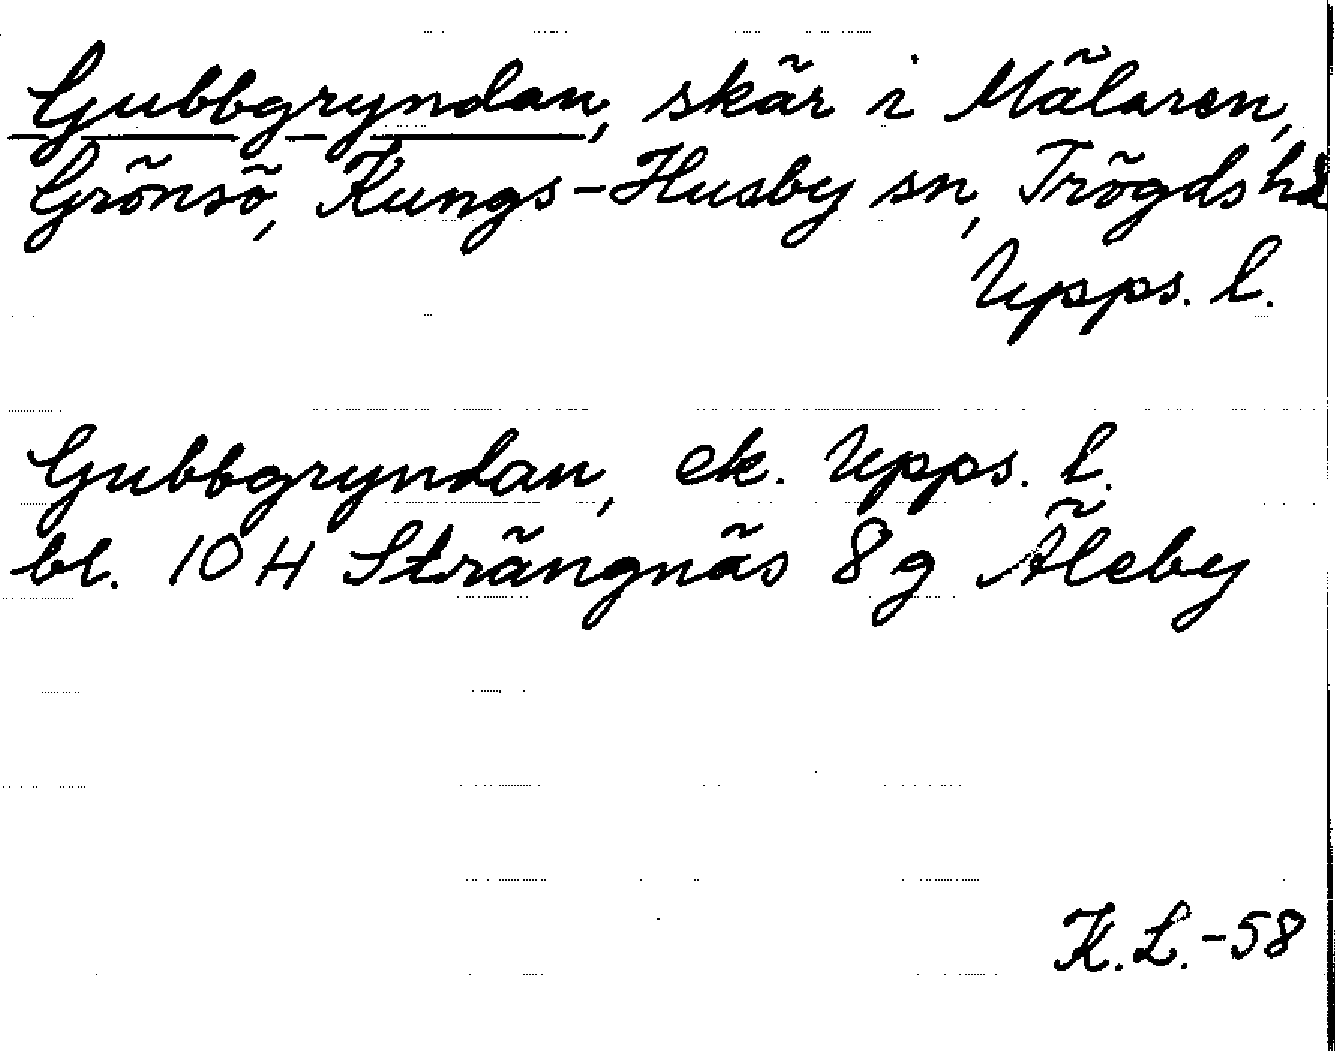 Gubbgryndan, skär i Mälaren,
Grönsö, Kungs-Husby sn, Trögds hd
Upps. l.
Gubbgryndan, ek. Upps. l.
bl. 10 H Strängnäs 8 g Äleby
K.L.-58